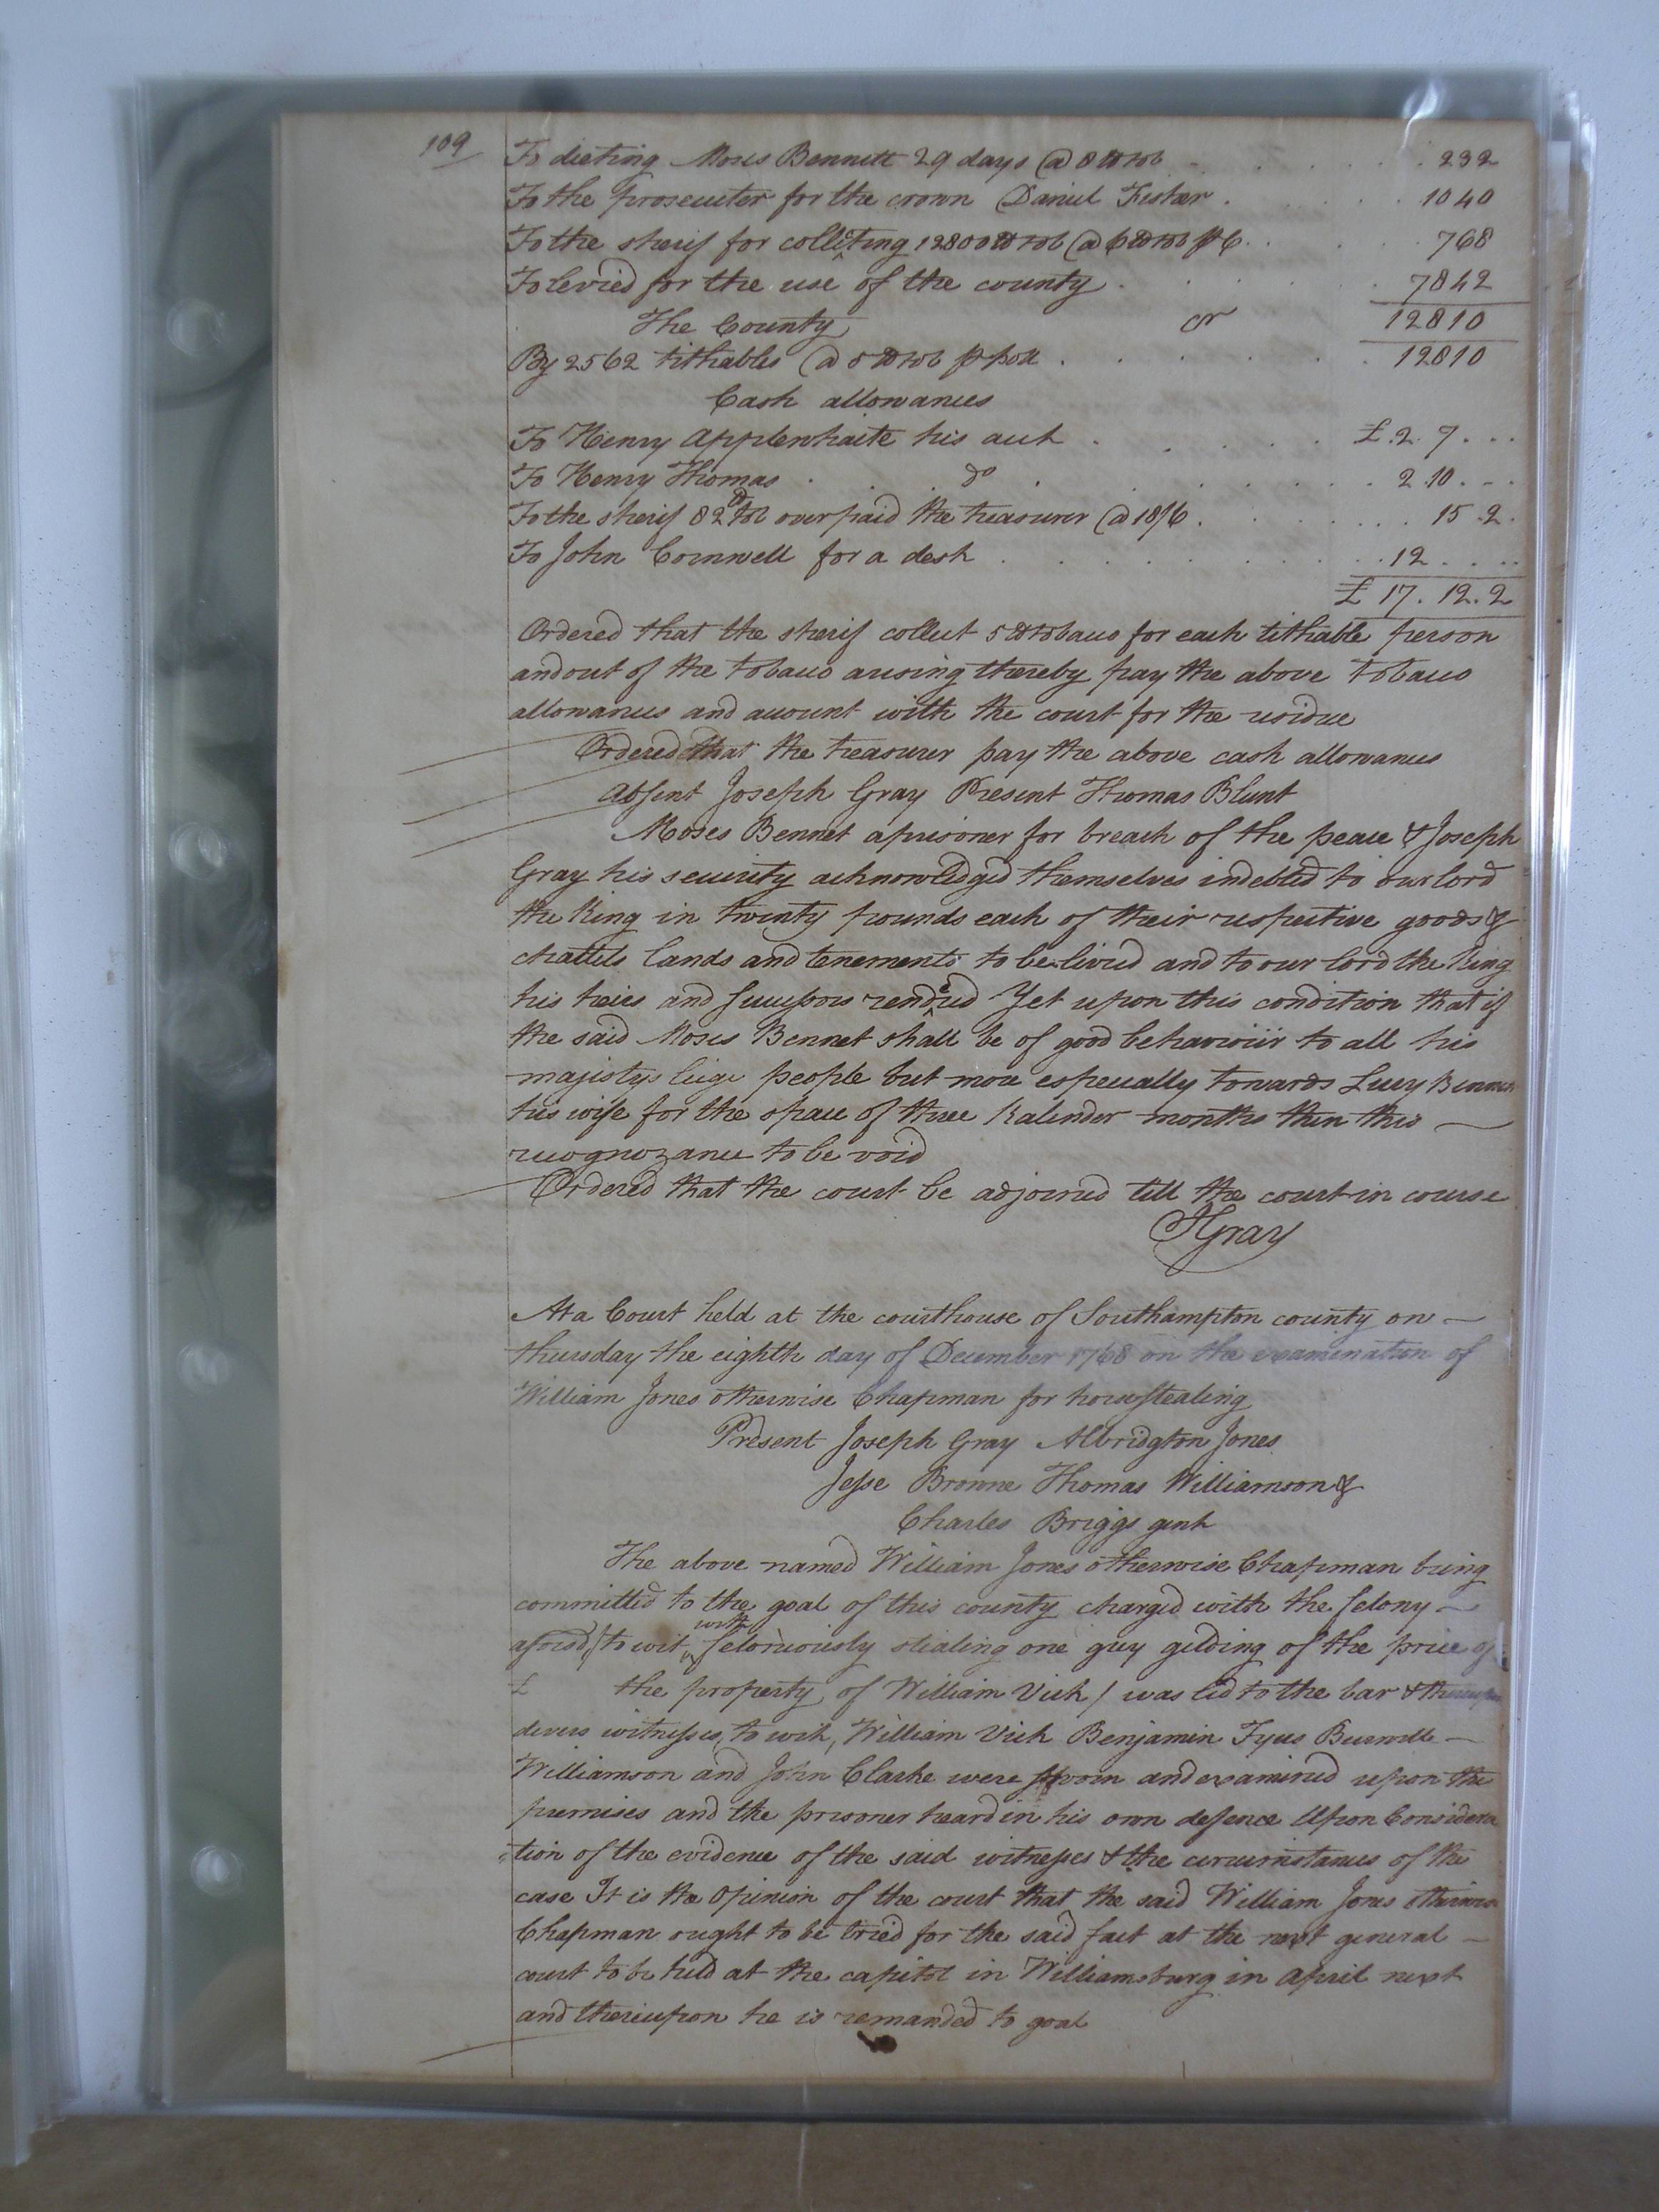 109
To dieting Moses Bennett 29 days @ 8 ℔ tob 232
To the prosecuter for the crown Daniel Fisher 1040
To the sherif for collecting 12800 ℔ tob @ 6 ℔ tob ⅌ C 768
To levied for the use of the county 7842
The County Cr 12810
By 2562 tithables @ 5 ℔ tob ⅌ poll 12810
Cash allowances
To Henry Applewhaite his acct £ 2. 7
To Henry Thomas do 2.10
To the sherif 82 ℔ tob over paid the treasurer @ 18/6 15.2
To John Cornwell for a desk 12
£ 17.12.2
Ordered that the sherif collect 5 ℔ tobacco for each tithable person
and out of the tobacco arising thereby pay the above tobacco
allowances and account with the court for the residue
Ordered that the treasurer pay the above cash allowances
Absent Joseph Gray Present Thomas Blunt
Moses Bennet a prisoner for breach of the peace & Joseph
Gray his security acknowledged themselves indebted to our lord
the King in twenty pounds each of their respective goods &
chattels lands and tenements to be levied and to our lord the King
his heirs and successors rendered Yet upon this condition that if
the said Moses Bennet shall be of good behaviour to all his
majestys liege people but more especially towards Lucy Bennet
his wife for the space of three Kalender months then this
recognozance to be void
Ordered that the court be adjourned till the court in course
J Gray
At a Court held at the courthouse of Southampton county on
thursday the eighth day of December 1768 on the examination of
William Jones otherwise Chapman for horsestealing
Present Joseph Gray Albridgton Jones
Jesse Browne Thomas Williamson &
Charles Briggs gent
The above named William Jones otherwise Chapman being
committed to the goal of this county charged with the felony
aforesd / to wit, with feloniously stealing one grey gelding of the price of
£ the property of William Vick / was led to the bar & thereupon
divers witnesses, to wit, William Vick Benjamin Tyus Burwell
Williamson and John Clarke were sworn and examined upon the
premises and the prisoner heard in his own defence Upon Considera
tion of the evidence of the said witnesses & the circumstances of the
case It is the Opinion of the court that the said William Jones otherwise
Chapman ought to be tried for the said fact at the next general
court to be held at the capitol in Williamsburg in April next
and thereupon he is remanded to goal